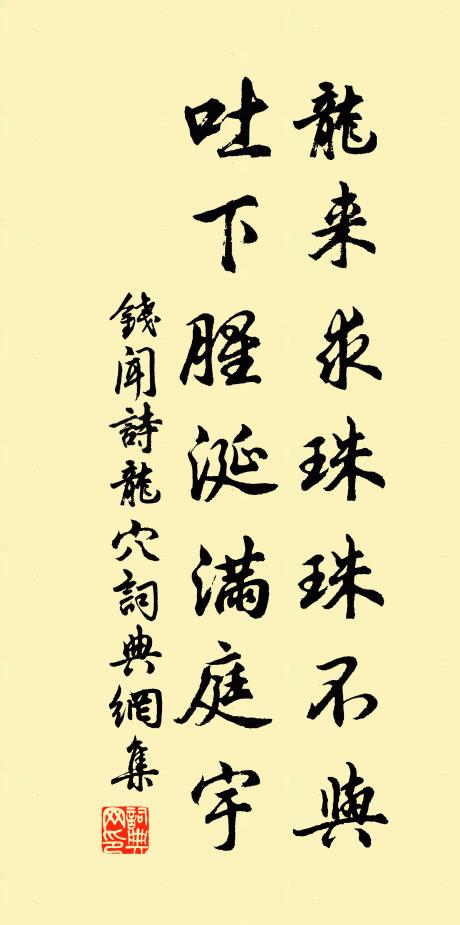 龍来求珠珠不與
吐下腥涎滿庭宇
錢聞詩龍穴詞典網集
詞典网印